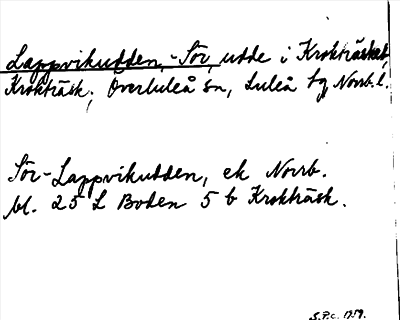 Lappvikudden, -Sör, udde i Krokträsket,
Krokträsk, Överluleå sn, Luleå tg Norrb. l.
Sör-Lappvikudden, ek Norrb.
bl. 25 L Boden 5 b Krokträsk.